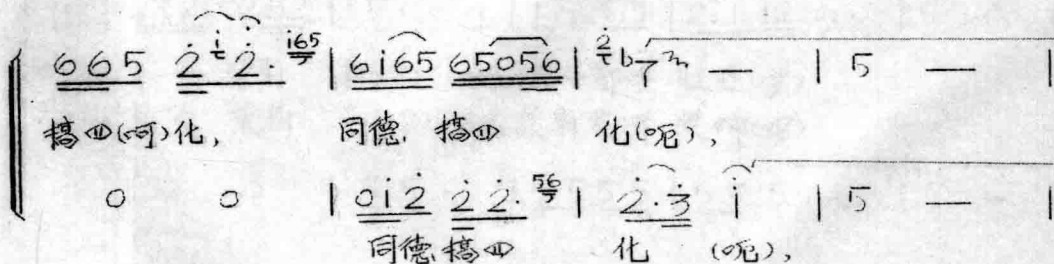 6 6 5 2̇ i 2̇. i65 | 6i65 65056 | 2̇ b7 — | 5 — |
搞四(呵)化, 同德, 搞四 化(呃),
0 0 | 0 i 2̇ 2̇ 2̇. 56 | 2̇. 3̇ i | 5 — |
同德, 搞四 化 (呃),